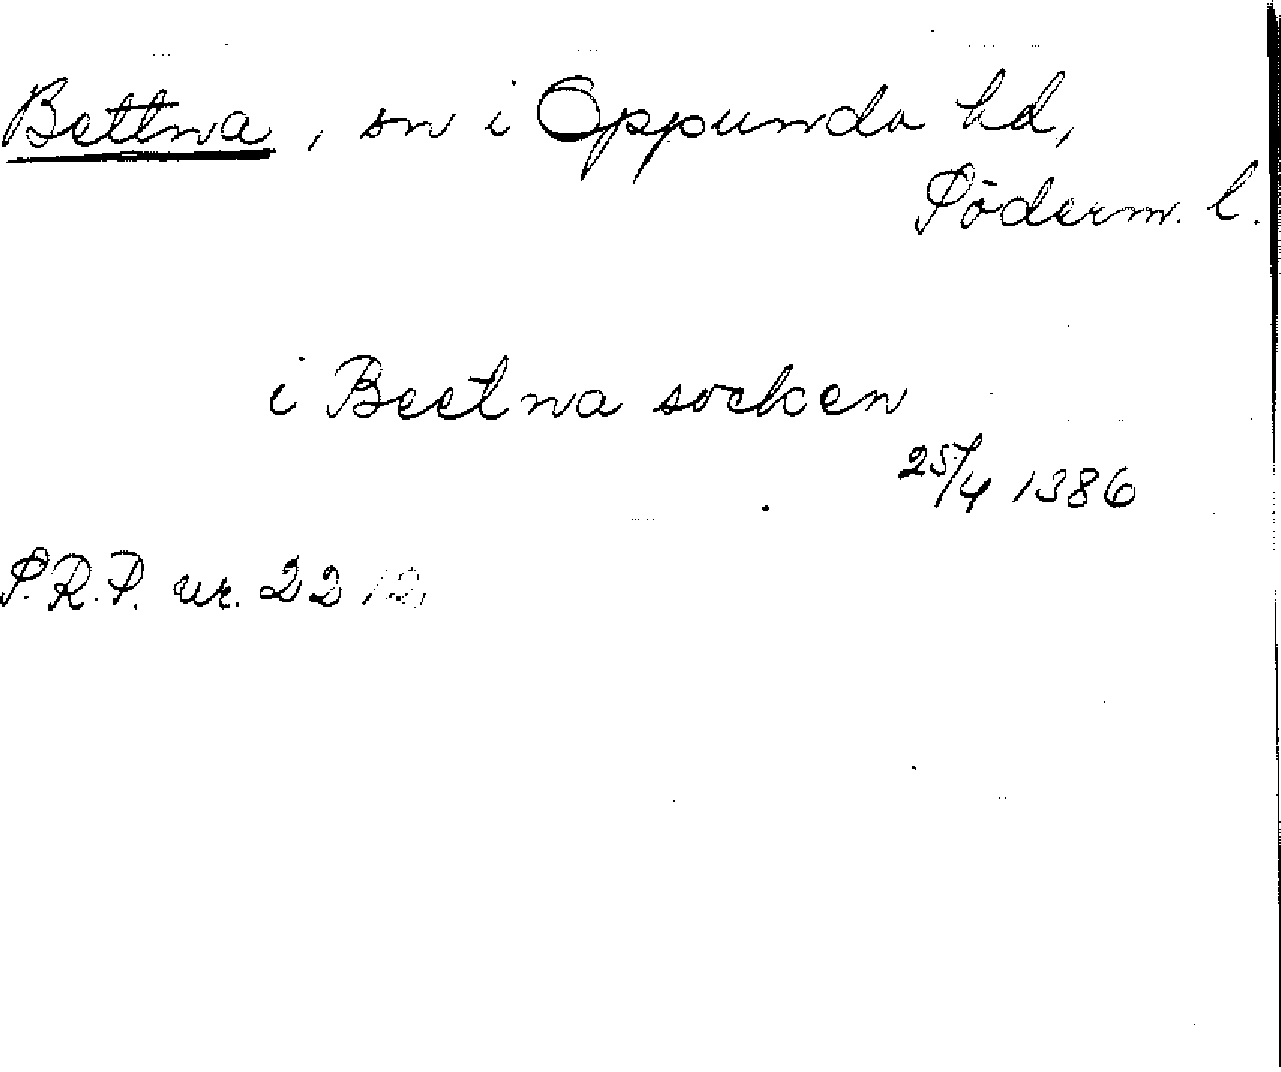 Bettna, sn i Oppunda hd,
Söderm. l.
i Beetna socken
25/4 1386
S.R.P. nr. 2212